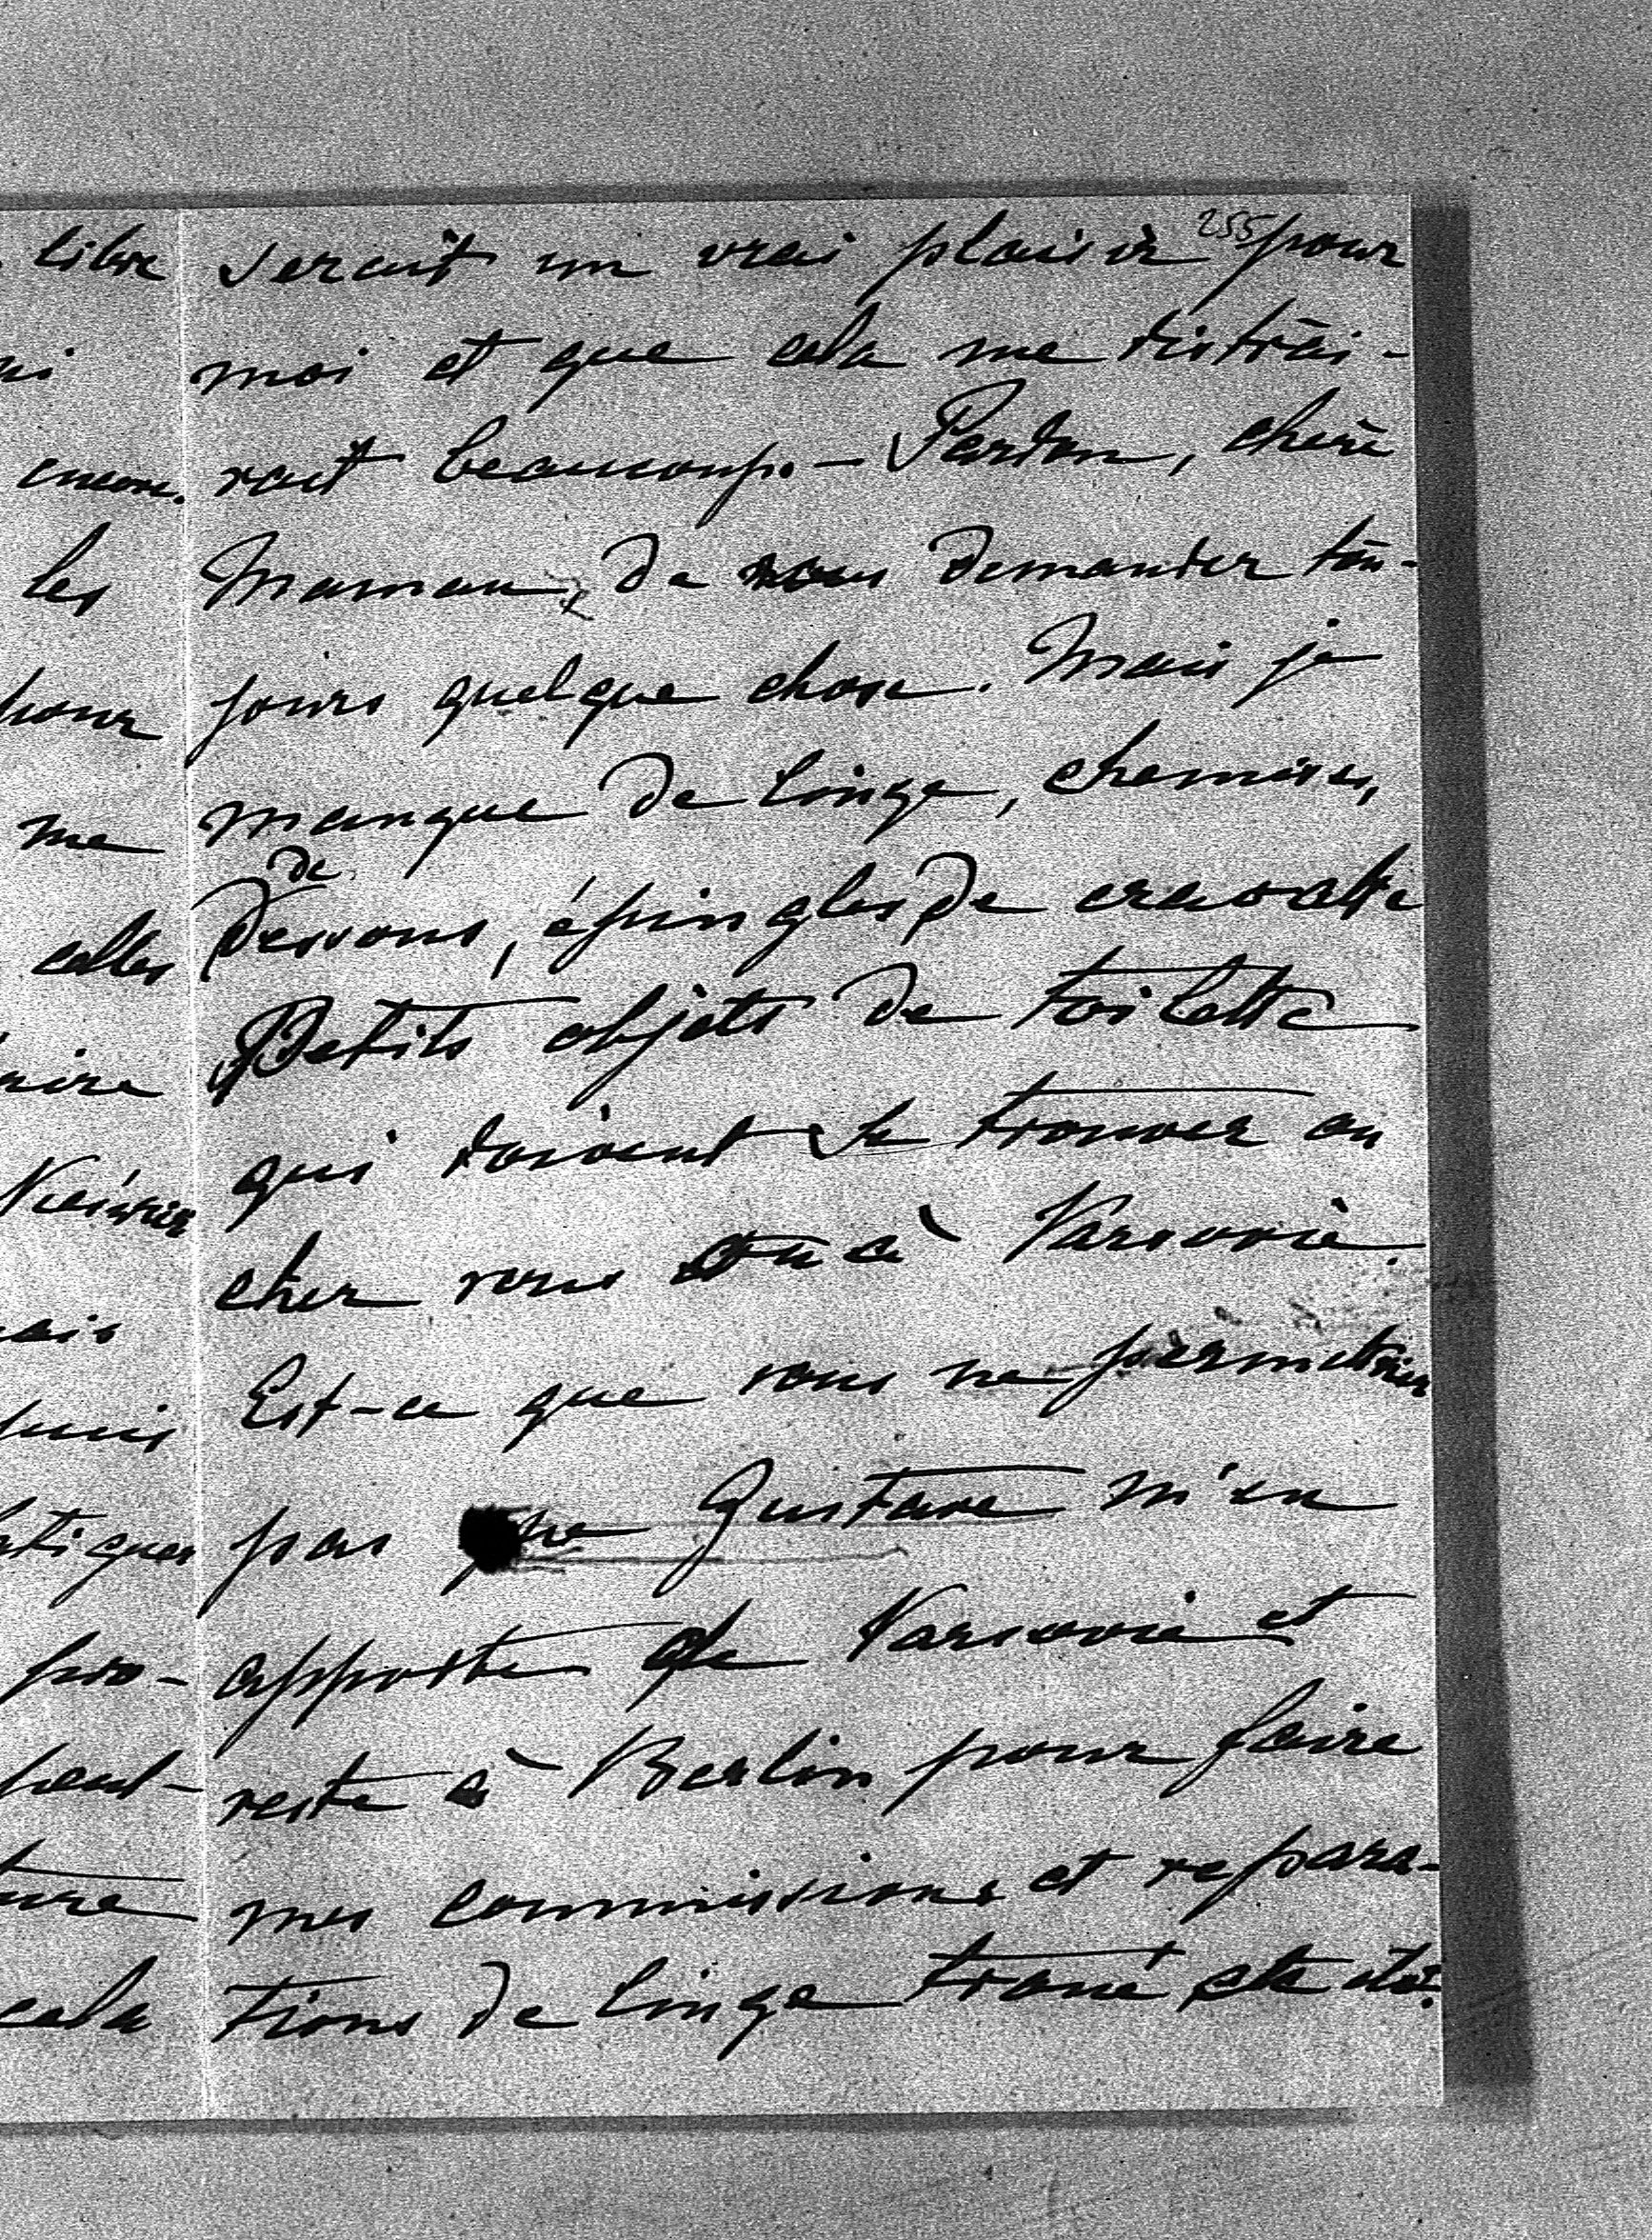 255
serait un vrai plaisir pour
moi et que cela me distrai-
rait beaucoup. – Pardon, chère
Maman, de vous demander tou-
jours quelque chose. Mais je
manque de linge, chemises,
de
dessous, épingles de cravatte
Petits objets de toilette
qui doivent se trouver ou
chez vous ou à Varsovie.
Est-ce que vous ne permettriez
pas que Gustave m'en
apporte de Varsovie et
reste à Berlin pour faire
mes commissions et repara-
tions de linge troué etc etc.
libre
encore.
les
pour
me
celles
puis
pro-
peut-
cela